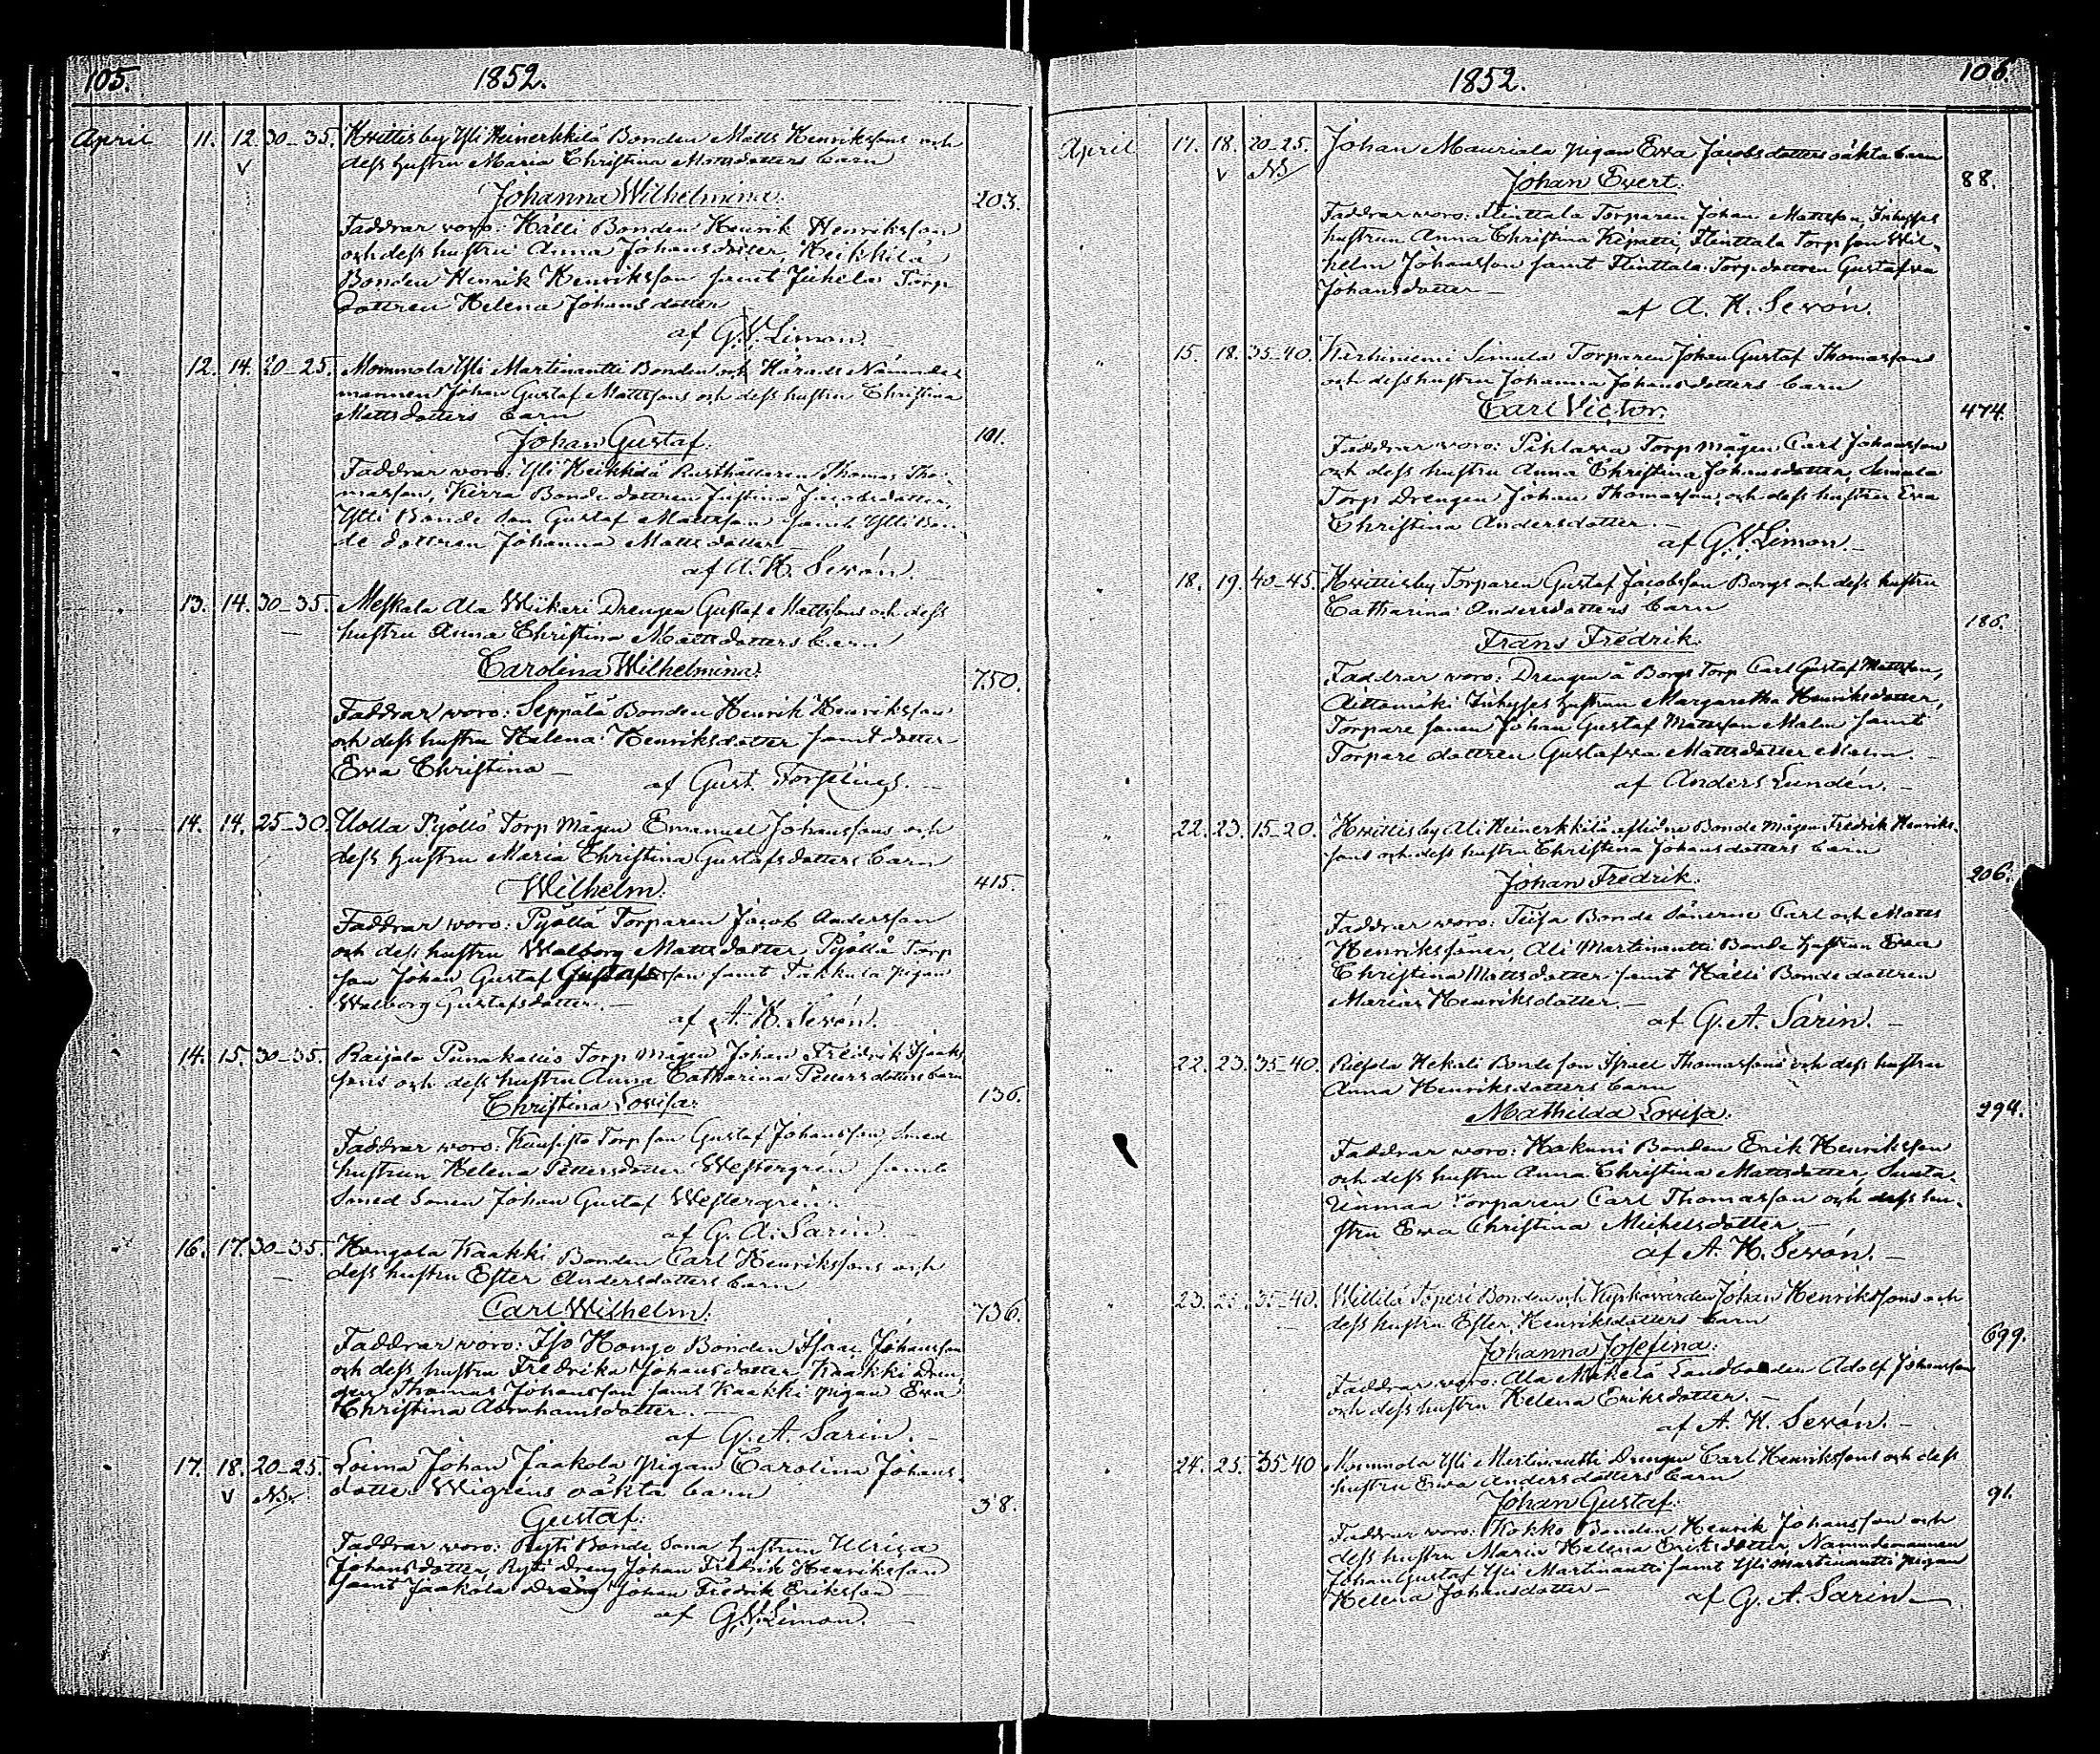 105.
1852.
April 11. 12. 30-35. Kvittisby Yli Heinerkkilä Bonden Matts Henrikssons och
dess hustru Maria Christina Mattsdotters barn
Johanna Wilhelmina.
203.
Faddrar voro: Hälli Bonden Henrik Henriksson
och dess hustru Anna Johansdotter, Heikkilä
Bonden Henrik Henriksson samt Juhela Torp
dottren Helena Johansdotter
af G. V. Limon.
12. 14. 20-25. Mommola Yli Martinantti Bonden och Härads Nämnde-
mannen Johan Gustaf Mattssons och dess hustru Christina
Mattsdotters barn
Johan Gustaf.
101.
Faddrar voro: Yli Heikkilä Rusthållaren Thomas Tho-
masson, Kirra Bonde dottren Justina Jacobsdotter,
Ylli Bonde Son Gustaf Mattsson samt Ylli Bon-
de dottren Johanna Mattsdotter
af A. H. Sevón.
13. 14. 30-35. Meskala Ala Wiikari Drengen Gustaf Mattssons och dess
hustru Anna Christina Mattsdotters barn
Carolina Wilhelmina.
750.
Faddrar voro: Seppälä Bonden Henrik Henriksson
och dess hustru Helena Henriksdotter samt dotter
Eva Christina
af Gust. Forselius.
14. 14. 25-30. Uolla Pyöllö Torp Mågen Emanuel Johanssons och
dess hustru Maria Christina Gustafsdotters barn
Wilhelm.
415.
Faddrar voro: Pyöllä Torparen Jacob Andersson
och dess hustru Walborg Mattsdotter, Pyöllä Torp
son Johan Gustaf Gustafsson samt Takkula pigan
Walborg Gustafsdotter.
af A. H. Sevón.
14. 15. 30-35. Raijala Punakallio Torp Mågen Johan Fredrik Isaaks
sons och dess hustru Anna Catharina Pettersdotters barn
Christina Lovisa.
136.
Faddrar voro: Torp son Gustaf Johansson, Smed
hustrun Helena Pettersdotter Westergrén samt
Smed Sonen Johan Gustaf Westergrén.
af G. A. Sarin.
16. 17. 30-35. Hongola Kaakki Bonden Carl Henrikssons och
dess hustru Ester Andersdotters barn
Carl Wilhelm.
736.
Faddrar voro: Iso Hongo Bonden Isaac Johansson
och dess hustru Fredrika Johansdotter, Kaakki Dren-
gen Thomas Johansson samt Kaakki pigan Eva
Christina Abrahamsdotter.
af G. A. Sarin.
17. 18. 20-25. Loima Johan Jaakola pigan Carolina Johans-
dotter Wigréns oäkta barn
Gustaf.
38.
Faddrar voro: Ryti Bonde Sona hustrun Ulrica
Johansdotter, Ryti Dreng Johan Fredrik Henriksson
samt Jaakola Dräng Johan Fredrik Eriksson
af G. V. Limon.
106.
1852.
April 17. 18. 20-25. Johan Mauriala pigan Eva Jacobsdotters oäkta barn
Johan Evert.
88.
Faddrar voro: Flinttala Torparen Johan Mattsson, Inhyses
hustrun Anna Christina Kipatti, Flinttala Torp son Wil-
helm Johansson samt Flinttala Torp dottren Gustafva
Johansdotter
af A. H. Sevón.
15. 18. 35-40. Karhiniemi Simula Torparen Johan Gustaf Thomassons
och dess hustru Johanna Johansdotters barn
Carl Victor.
474.
Faddrar voro: Pihlava Torp mågen Carl Johansson
och dess hustru Anna Christina Johansdotter, Simula
Torp Drengen Johan Thomasson och dess hustru Eva
Christina Andersdotter.
af G. V. Limon.
18. 19. 40-45. Kvittisby Torparen Gustaf Jacobsson Borgs och dess hustru
Catharina Andersdotters barn
186.
Frans Fredrik.
Faddrar voro: Drengen å Borgs Torp Carl Gustaf Mattsson,
Aittamäki Inhyses hustrun Margaretha Henriksdotter,
Torpare sonen Johan Gustaf Mattsson Malm samt
Torpare dottren Gustafva Mattsdotter Malm.
af Anders Lundén.
22. 23. 15-20. Kvittisby Ali Heinerkkilä aflidne Bonde Mågen Fredrik Henriks-
sons och dess hustru Christina Johansdotters barn
Johan Fredrik.
206.
Faddrar voro: Teisa Bonde Sönerne Carl och Matts
Henrikssöner, Ali Martinantti Bonde hustrun Eva
Christina Mattsdotter samt Hälli Bonde dottren
Maria Henriksdotter.
af G. A. Sarin.
22. 23. 35-40. Riesola Hekali Bonde son Israel Thomassons och dess hustru
Anna Henriksdotters barn
Mathilda Lovisa.
294.
Faddrar voro: Hakuni Bonden Erik Henriksson
och dess hustru Anna Christina Mattsdotter,
Torparen Carl Thomasson och dess hu-
stru Eva Christina Michelsdotter,
af A. H. Sevón.
23. 25. 35-40. Willilä Töperi Bonden och Kyrkovärden Johan Henrikssons och
dess hustru Ester Henriksdotters barn
Johanna Josefina.
699.
Faddrar voro: Ala Mäkelä Landbonden Adolf Johansson
och dess hustru Helena Eriksdotter.
af A. H. Sevón.
24. 25. 35-40 Mommola Yli Martinantti Drengen Carl Henrikssons och dess
hustru Eva Andersdotters barn
Johan Gustaf.
91.
Faddrar voro: Kokko Bonden Henrik Johansson och
dess hustru Maria Helena Eriksdotter, Nämndemannen
Johan Gustaf Yli Martinantti samt Yli Martinantti pigan
Helena Johansdotter
af G. A. Sarin